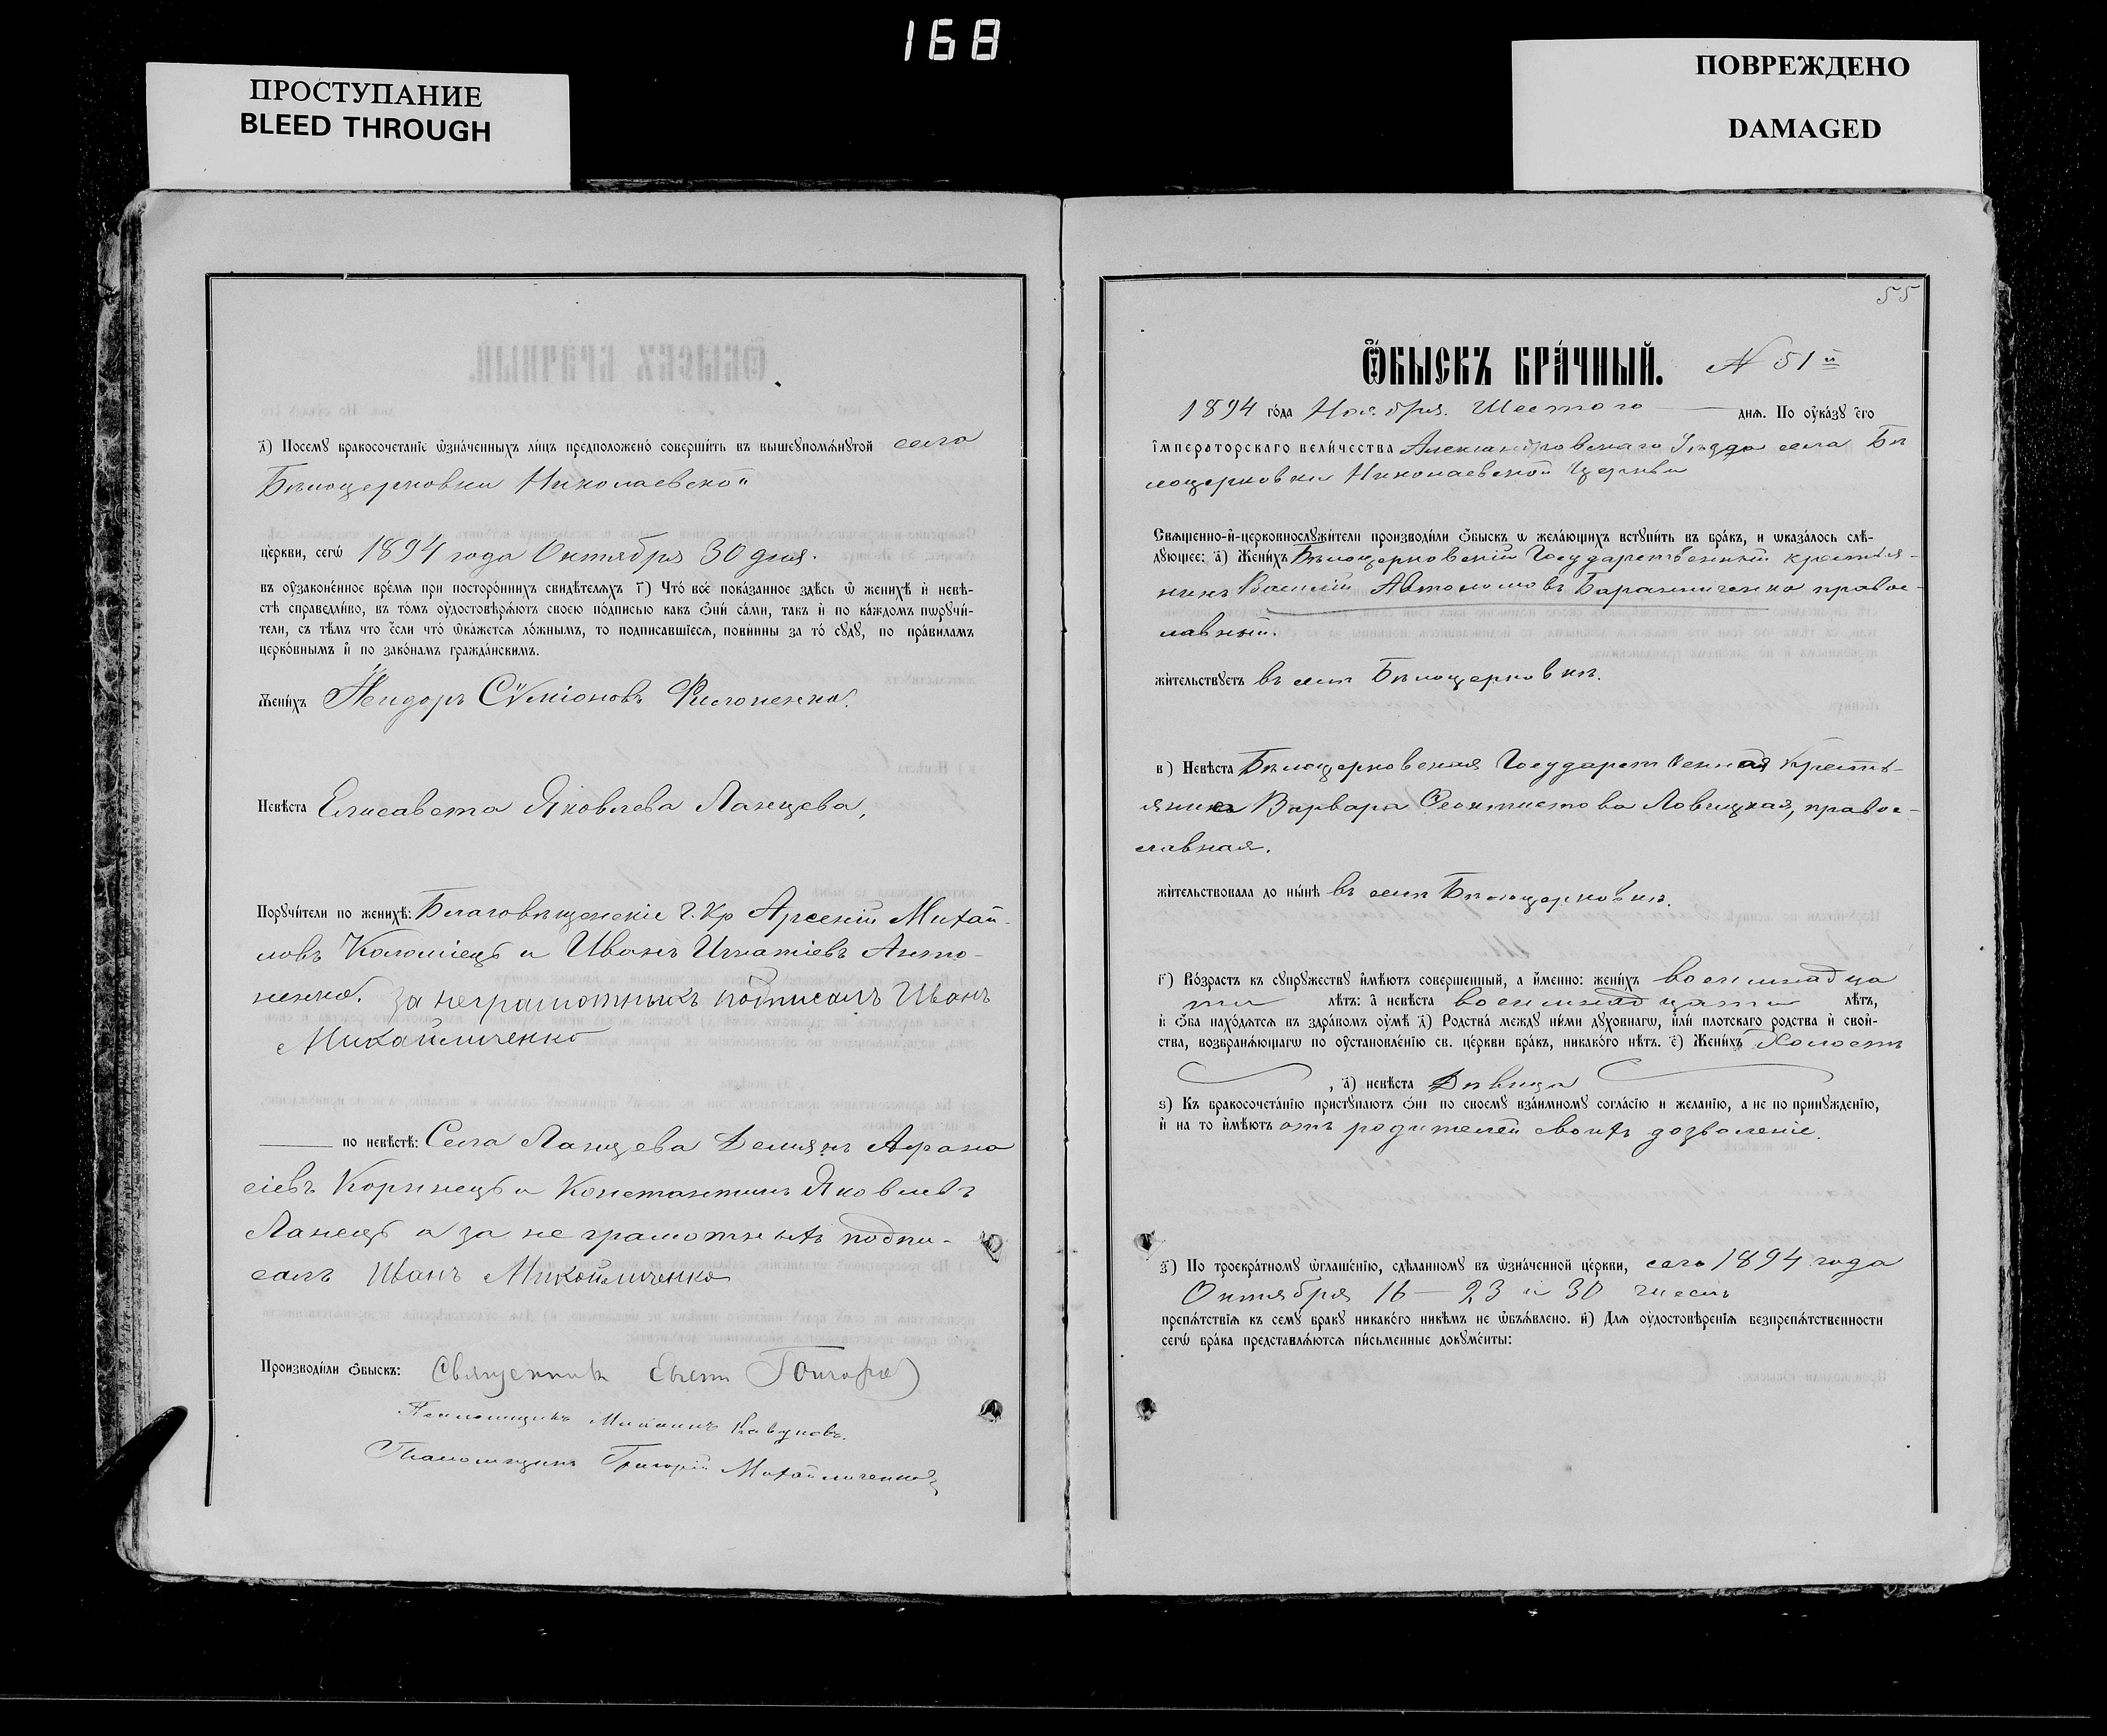 168
ПРОСТУПАНИЕ
BLEED THROUGH
ПОВРЕЖДЕНО
DAMAGED
д҃) Посемꙋ бракосочетаніе ѿзна́ченныхъ ли́цъ предположено́ соверши́ть въ вышеꙋпомѧ́нꙋтой села
Бѣлоцерковки Николаевской
це́ркви, сегѡ̀ 1894 года Октября 30 дня.
въ оу҆законе́нное вре́мѧ при посторо́ннихъ свидѣ́телѧхъ г҃) Что́ все́ пока́занное здѣ́сь ѡ҆ женихѣ̀ и҆ невѣ́-
стѣ справедли́во, въ то́мъ оу҆достовѣрѧ́ютъ своею по́дписью какъ ѻ҆ни́ са́ми, такъ и҆ по ка́ждомъ пѡрꙋчи́-
тели, съ тѣ́мъ что е҆́сли что́ ѿка́жетсѧ ло́жнымъ, то подписавшіесѧ, пови́нны за то́ сꙋдꙋ̀, по пра́виламъ
церко́внымъ и҆ по зако́намъ гражда́нскимъ.
Жени́хъ Ѳидоръ Сѵмiоновъ Филоненко.
Невѣ́ста Елисавета Яковлева Ланцева,
Порꙋчи́тели по женихѣ̀: Благовѣщенскіе Г. Кр Арсеній Михай-
ловъ Коломіецъ и Иванъ Игнатіевъ Анто-
ненко. За неграмотныхъ подписалъ Иванъ
Михайличенко
по невѣ́стѣ: Села Ланцева Демянъ Афана
сіевъ Коринецъ и Константинъ Яковлевъ
Ланецъ и за не грамотныхъ подпи-
салъ Иванъ Михайличенко
Производи́ли ѻ҆́быскъ: Священникъ Евген
Псаломщикъ Кавуновъ.
Псаломщикъ Григорій Михайличенко
55
Ѻ҆́БЫСКЪ БРА́ЧНЫЙ. N 51й
1894 го́да Ноября. Шестого днѧ. По оу҆ка́зꙋ є҆гѡ̀
і҆мператорскагѡ вели́чества Александровскаго Уѣзда села Бѣ
лоцерковки Николаевской Церкви
Свѧщенно-и҆-церковнослꙋжи́тели производи́ли ѻ҆́быскъ ѡ жела́ющихъ встꙋпи́ть въ бра́къ, и ѡказа́лось слѣ́-
дꙋющее: а҃) Жени́хъ Бѣлоцерковскій Государственный кресть я-
нинъ Василій Автономовъ Баранниченко правос-
лавный.
жи́тельствꙋетъ въ селѣ Бѣлоцерковкѣ.
в҃) Невѣ́ста Бѣлоцерковская Государственная Кресть-
янка Варвара Феоктистова Ловицкая, правос-
лавная.
жи́тельствовала до ны́нѣ въ селѣ Бѣлоцерковкѣ.
г҃) Во́зрастъ къ сꙋпрꙋжествꙋ и҆мѣ́ютъ совершенный, а и҆́менно: жени́хъ восемнадца
ти лѣ́тъ: а҆ невѣ́ста восемнадцати лѣ́тъ,
и҆ ѻ҆́ба нахо́дѧтсѧ въ здра́вомъ оу҆мѣ̀ д҃) Родства̀ междꙋ ни́ми дꙋхо́внагѡ, и҆ли плотскаго родства и҆ свой-
ства, возбранѧ́ющагѡ по оу҆становле́нію св. це́ркви бра́къ, никако́го нѣ́тъ. є҃) Жени́хъ Холостъ
, а҆) невѣ́ста Дѣвица
ѕ҃) Къ бракосочета́нію пристꙋпа́ютъ ѻ҆нѝ по своемꙋ вза́имномꙋ согла́сію и жела́нію, а не по принꙋжде́нію,
и҆ на то и҆мѣ́ютъ отъ родителей своихъ дозволеніе.
з҃) По троекра́тномꙋ ѡ҆глаше́нію, сдѣ́ланномꙋ въ ѿзна́ченной це́ркви, сего 1894 года
Октября 16 — 23 и 30 чиселъ
препѧ́тствія къ семꙋ бракꙋ никако́го никѣ́мъ не ѡ҆бъѧ́влено. и҃) Длѧ оу҆достовѣ́ренія безпрепѧ́тственности
сегѡ̀ бра́ка представлѧ́ютсѧ пи́сьменные докꙋме́нты: